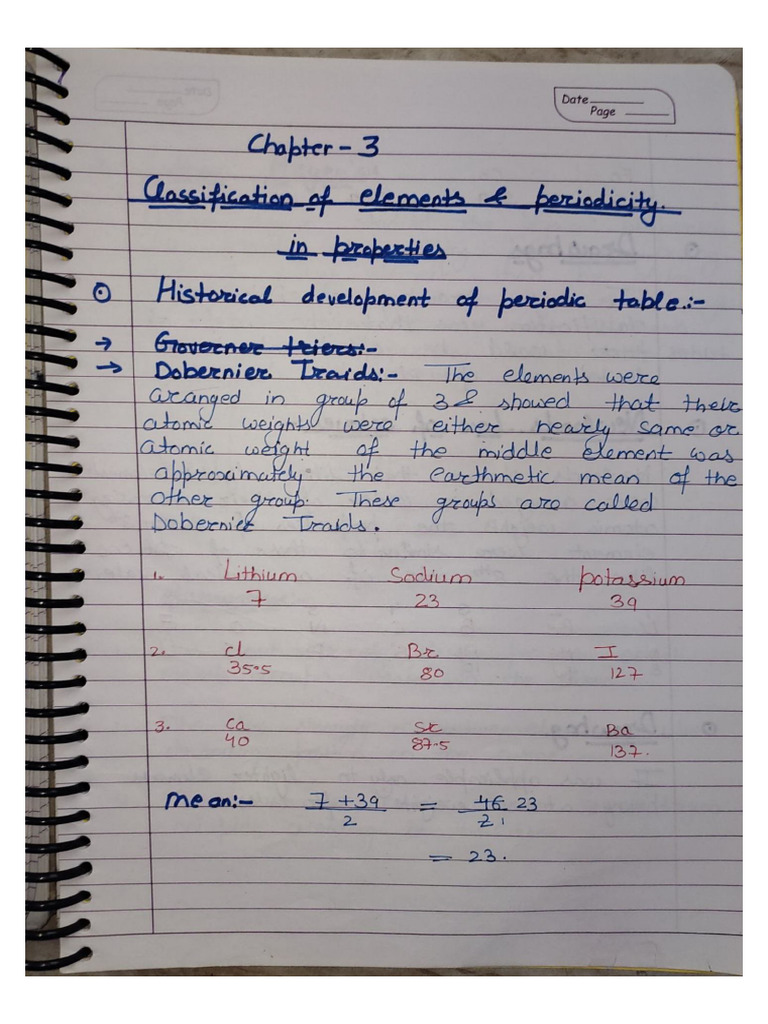 Date
Page
Chapter - 3
Classification of elements & periodicity.
in properties
⊙ Historical development of periodic table:-
→ Governer triers:-
→ Dobernier Traids:- The elements were
aranged in group of 3 & showed that their
atomic weights were either nearly same or
atomic weight of the middle element was
approximately the earthmetic mean of the
other group. These groups are called
Dobernier Traids.
1. Lithium Sodium potassium
7 23 39
2. Cl Br I
35.5 80 127
3. Ca Sr Ba
40 87.5 137.
Mean:- 7 + 39 = 46 23
2 2 1
= 23.